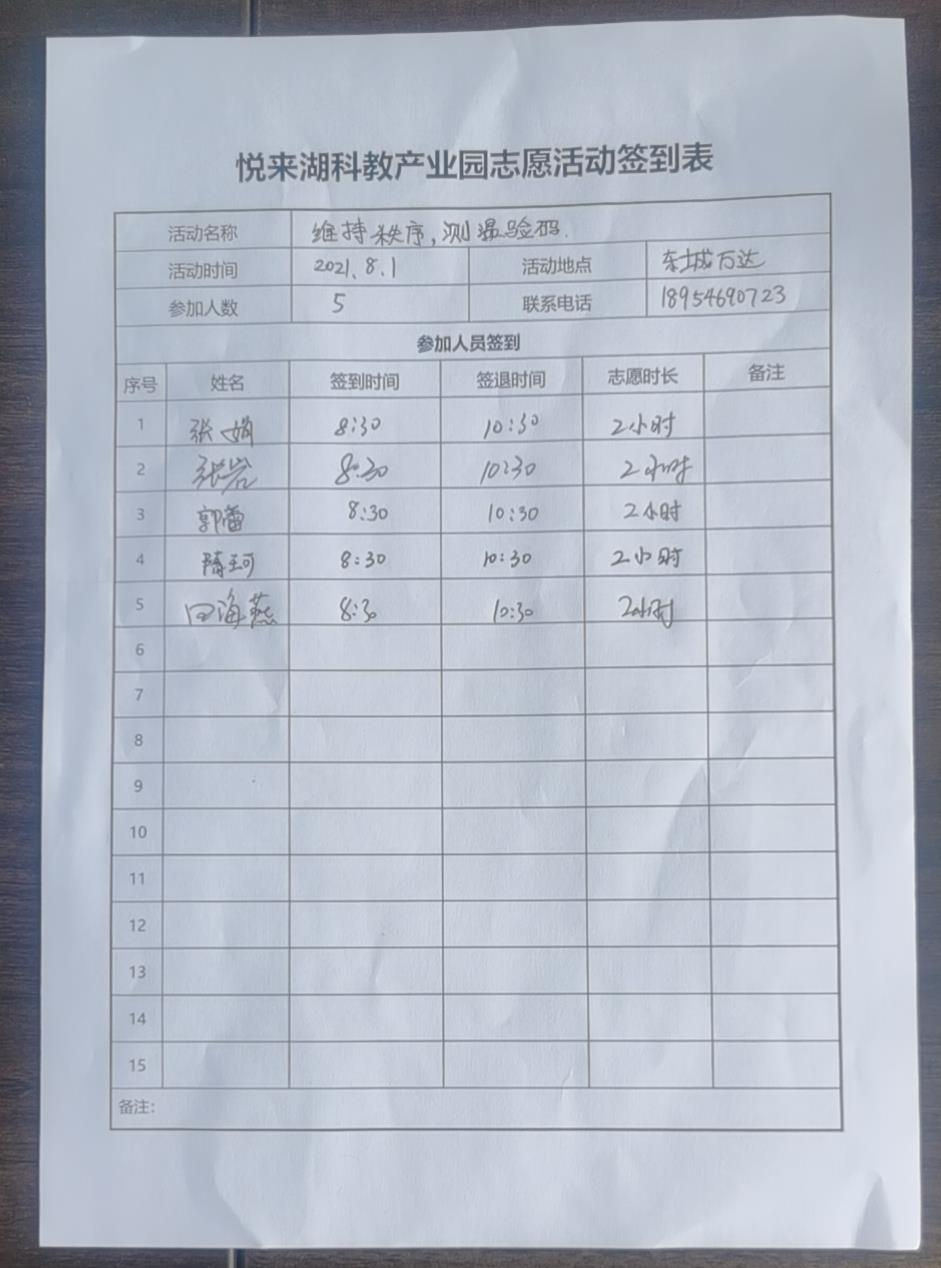 悦来湖科教产业园志愿活动签到表
活动名称 维持秩序,测温验码.
活动时间 2021.8.1 活动地点 东城万达
参加人数 5 联系电话 18954690723
参加人员签到
序号 姓名 签到时间 签退时间 志愿时长 备注
1 张娟 8:30 10:30 2小时
2 张岩 8:30 10:30 2小时
3 郭蕾 8:30 10:30 2小时
4 隋珂 8:30 10:30 2小时
5 田海燕 8:30 10:30 2小时
6
7
8
9
10
11
12
13
14
15
备注: